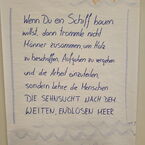 Wenn Du ein Schiff bauen
willst, dann trommle nicht
Männer zusammen, um Holz
zu beschaffen, Aufgaben zu vergeben
und die Arbeit einzuteilen,
sondern lehre die Menschen
DIE SEHNSUCHT NACH DEM
WEITEN, ENDLOSEN MEER